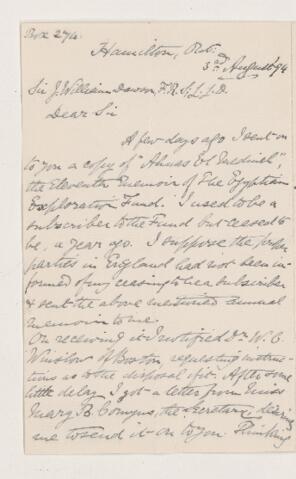 Box 274.
Hamilton, Ont.
3rd August 94
Sir J. William Dawson, F.R.S. L.L.D.
Dear Sir
A few days ago I sent on
to you a copy of "Ahnas el Medineh",
the Eleventh memoir of The Egyptian
Exploration Fund. I used to be a
subscriber to the Fund but ceased to
be, a year ago. I suppose the proper
parties in England had not been in-
formed of my ceasing to be a subscriber
& sent the above mentioned annual
memoir to me.
On receiving it I notified Dr. W. C.
Winslow of Boston requesting instruc-
tions as to the disposal of it. After some
little delay I got a letter from Miss
Mary B. Comyns, the Secretary, desiring
me to send it on to you. Thinking